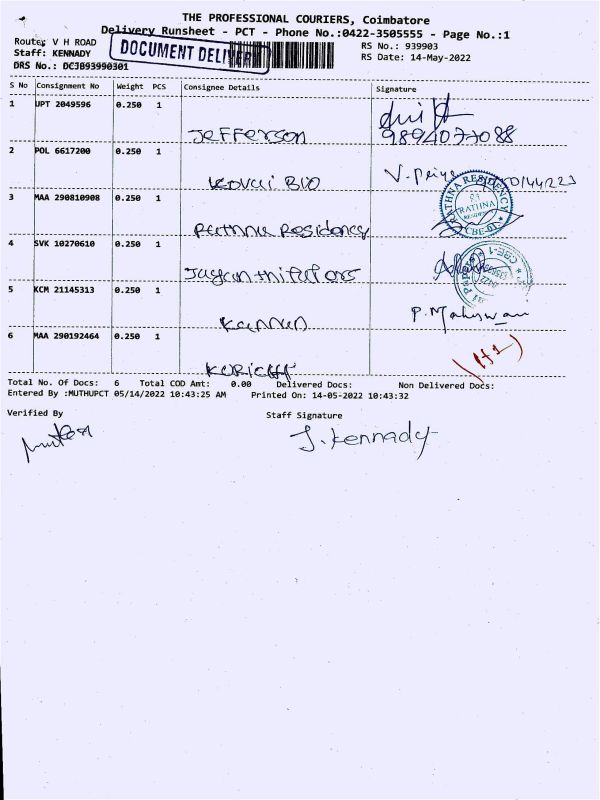 THE PROFESSIONAL COURIERS, Coimbatore
Delivery Runsheet - PCT - Phone No.:0422-3505555 - Page No.:1
Route: V H ROAD
RS No.: 939903
Staff: KENNADY
RS Date: 14-May-2022
DRS No.: DCJB93990301
DOCUMENT DELIVERY
S No Consignment No Weight PCS Consignee Details Signature
1 UPT 2049596 0.250 1
Jefferson 9894077088
2 POL 6617200 0.250 1
Kovai Bio V. Priya
3 MAA 290810908 0.250 1
RATHNA RESIDENCY
RATHNA
CBE-01
Rathna Residency
4 SVK 10270610 0.250 1
CBE-1
5 KCM 21145313 0.250 1
Kannan P. Maheswari
6 MAA 290192464 0.250 1
(H1)
Total No. Of Docs: 6 Total COD Amt: 0.00 Delivered Docs: Non Delivered Docs:
Entered By :MUTHUPCT 05/14/2022 10:43:25 AM Printed On: 14-05-2022 10:43:32
Verified By Staff Signature
J. Kennady